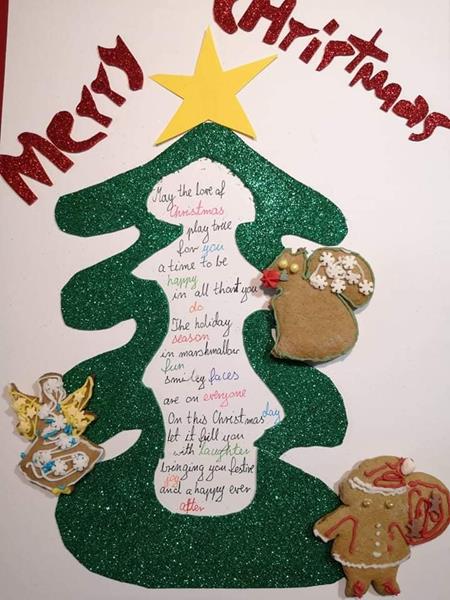 Merry Christmas
May the love of
Christmas
play tree
for you
a time to be
happy
in all that you
do
The holiday
season
in marshmallow
fun
smiley faces
are on everyone
On this Christmas day
let it fill you
with laughter
bringing you festive
joy
and a happy ever
after